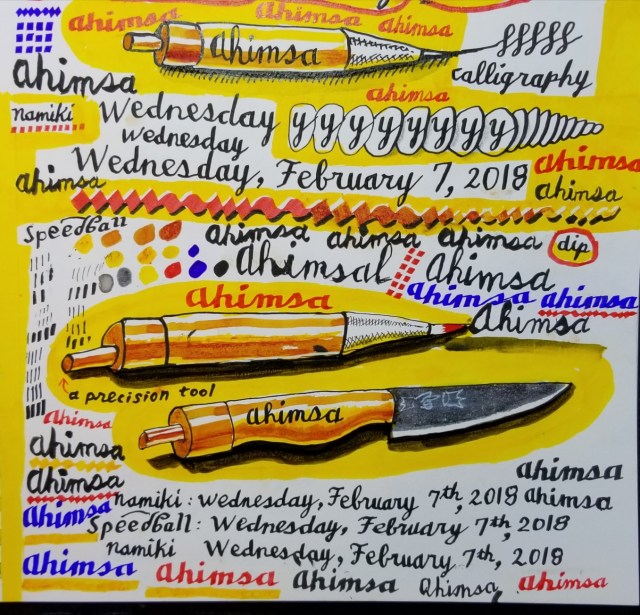 ahimsa ahimsa ahimsa
ahimsa
ahimsa calligraphy
ahimsa
namiki Wednesday
Wednesday
Wednesday, February 7, 2018 ahimsa
ahimsa ahimsa
Speedball ahimsa ahimsa ahimsa dip
Ahimsal Ahimsa
ahimsa ahimsa
ahimsa Ahimsa
a precision tool
ahimsa
ahimsa
ahimsa
ahimsa ahimsa
ahimsa namiki: Wednesday, February 7th, 2018 ahimsa
Speedball: Wednesday, February 7th, 2018
namiki Wednesday, February 7th, 2018
ahimsa ahimsa ahimsa Ahimsa ahimsa